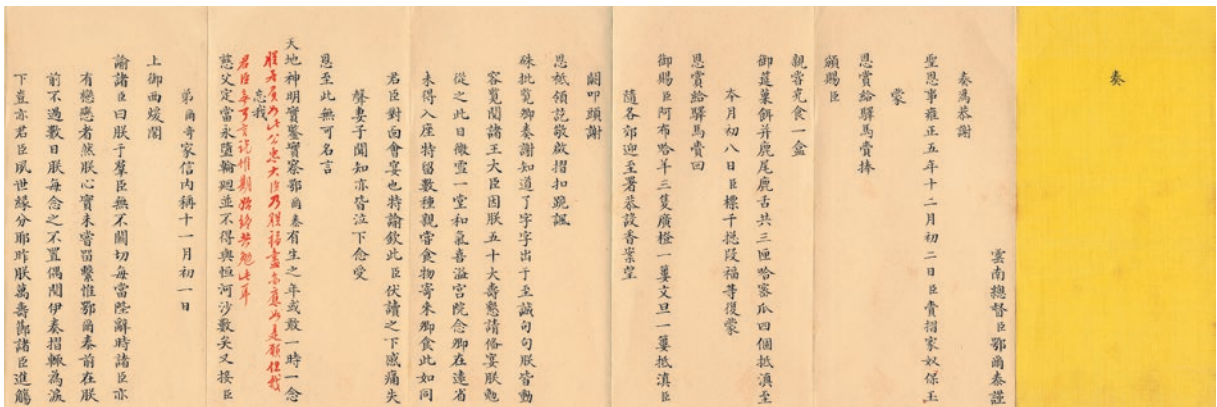 奏
雲南總督臣鄂爾泰謹
奏為恭謝
聖恩事雍正五年十二月初二日臣賫摺家奴保玉
蒙
恩賞給驛馬賫捧
頒賜臣
親嘗克食一盒
御筵菓餅并鹿尾鹿舌共三匣哈密瓜四個抵滇至
本月初八日臣標千總段福等復蒙
恩賞給驛馬賫回
御賜臣阿布哈羊三隻廣橙一簍文旦一簍抵滇臣
隨各郊迎至署恭設香案望
闕叩頭謝
恩祗領訖敬啟摺扣跪讀
硃批覽卿奏謝知道了字字出于至誠句句朕皆動
容覽閱諸王大臣因朕五十大壽懇請備宴朕勉
從之此日微雪一堂和氣喜溢宮院念卿在遠省
未得入座特留數種親嘗食物寄來卿食此如同
君臣對面會宴也特諭欽此臣伏讀之下感痛失
聲妻子聞知亦皆泣下念受
恩至此無可名言
天地神明實鑒實察鄂爾泰有生之年或敢一時一念
忘我
慈父定當永墮輪廻並不得與恒河沙數矣又接臣
弟爾奇家信內稱十一月初一日
上御西煖閣
諭諸臣曰朕于羣臣無不關切每當陛辭時諸臣亦
有戀戀者然朕心實未嘗留繫惟鄂爾泰前在朕
前不過數日朕每念之不置偶閱伊奏摺輒為淚
下豈亦君臣夙世緣分耶昨朕萬壽節諸臣進觴